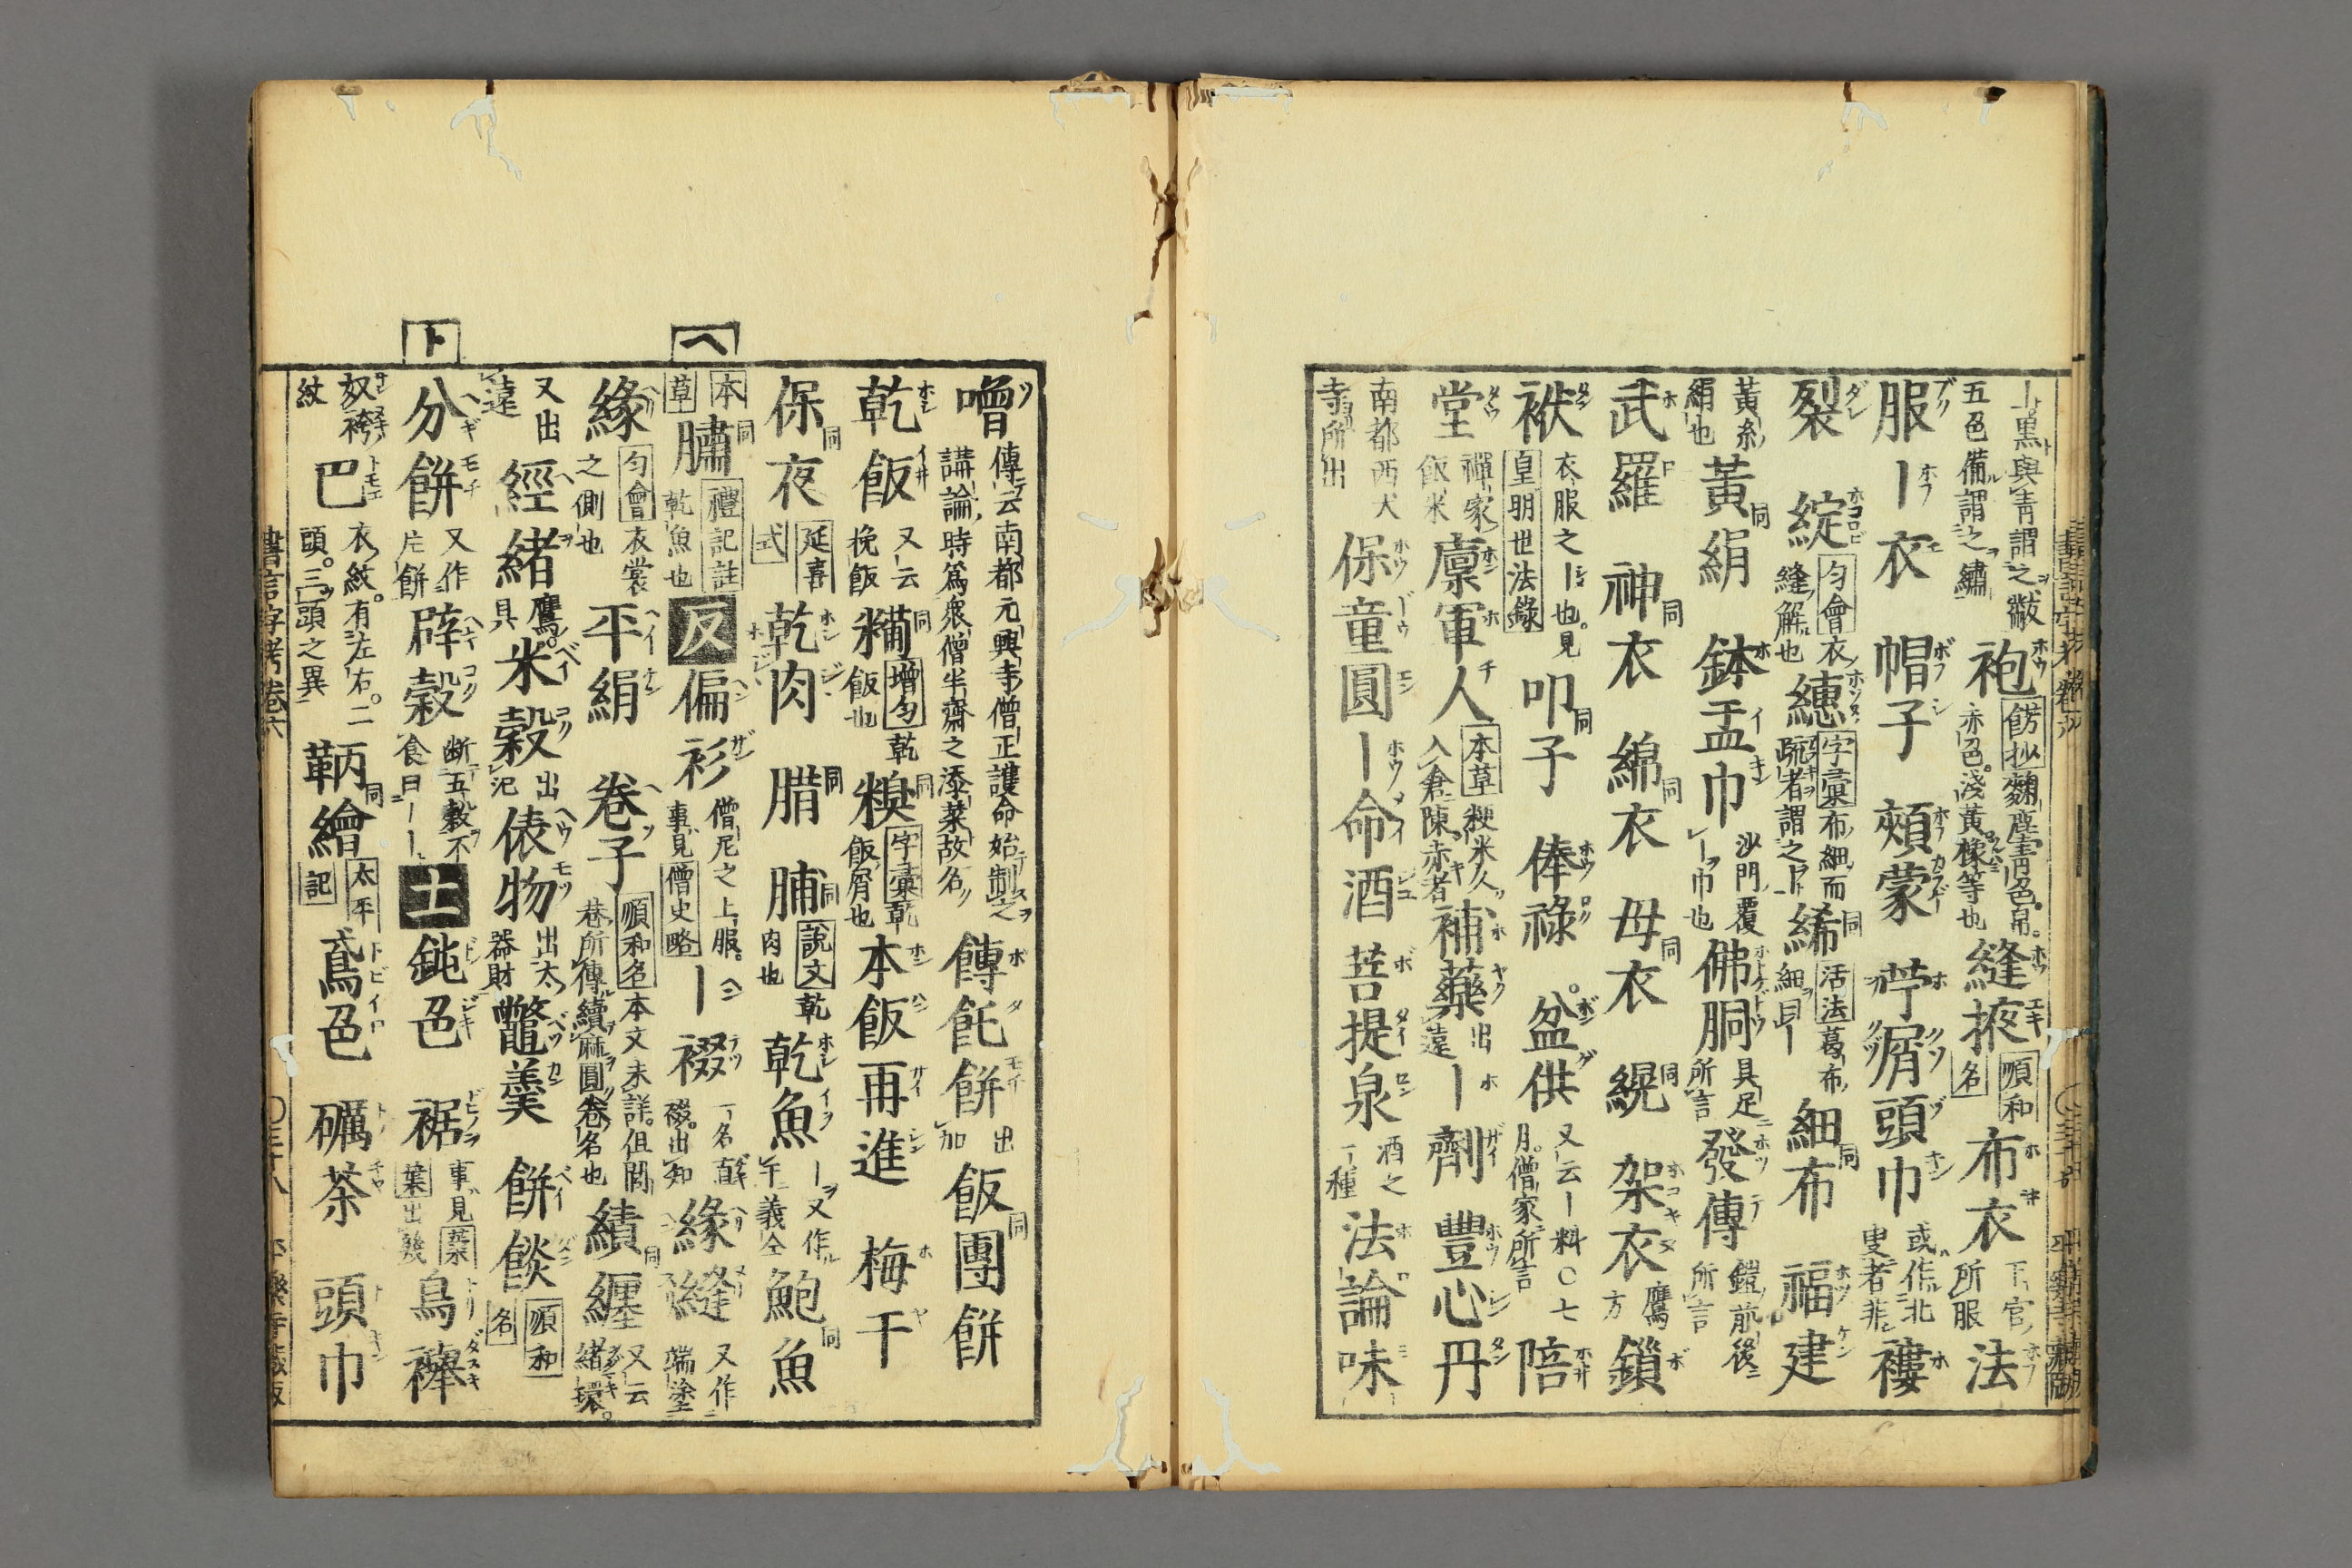 ｜黒與青謂之黻
五色備謂之繡
袍
餝抄麴塵青色帛。
赤色。淺黃橡等也
縫掖
順和
名
布衣
下官
所服
法
服｜衣帽子頰蒙苧屑頭巾
或作北
叟者非
褸
裂綻
匀會衣
縫解也
繐
字彙布細而
疏者謂之｜
絺
活法葛布
細曰｜
細布福建
黃糸
絹也
黃絹鉢盂巾
沙門覆
｜巾也
佛胴
具足
所言
發傳
鎧前後
所言
武羅神衣綿衣母衣䌙架衣
鷹
方
鎖
袱
衣服之｜也。見
皇明世法錄
叩子俸祿盆供
又云｜料〇七
月。僧家所言
陪
堂
禪家
飯米
廪軍人
本草粳米久
入倉陳赤者
補藥
出
遠
｜劑豐心丹
南都西大
寺所出
保童圓｜命酒菩提泉
酒之
一種
法論味
噌
傳云南都元興寺僧正護命始制之
講論時爲衆僧半齋之添菜故名
餺飥餅
出
加
飯團餅
乾飯
又｜云
挽飯
糒
增匀乾
飯也
糗
字彙乾
飯屑也
本飯再進梅干
保夜
延喜
式
乾肉腊脯
說文乾
肉也
乾魚
｜又作
午義仝
鮑魚
ヘ
本
草
鱐
禮記註
乾魚也
反
偏衫
僧尼之上服。
事見僧史略
｜裰
一名直
裰。出知
緣縫
又作
端塗
緣
匀會衣裳
之側也
平絹卷子
順和名本文未詳。但閭
巷所傳續麻圓卷名也
績纒
又云
緖環。
又出
遠
經緒
鷹。
具
米穀
出
汜
俵物
出太
器財
鼈羹餅餤
順和
名
ト
分餅
又作
片餅
辟穀
斷五穀不
食曰｜｜
土
鈍色裾
事見葉
葉出幾
鳥襷
奴袴
紋
巴
衣紋有左右。二
頭。三頭之異
鞆繪
太平
記
鳶色礪茶頭巾
書言字考卷六
〇三十八